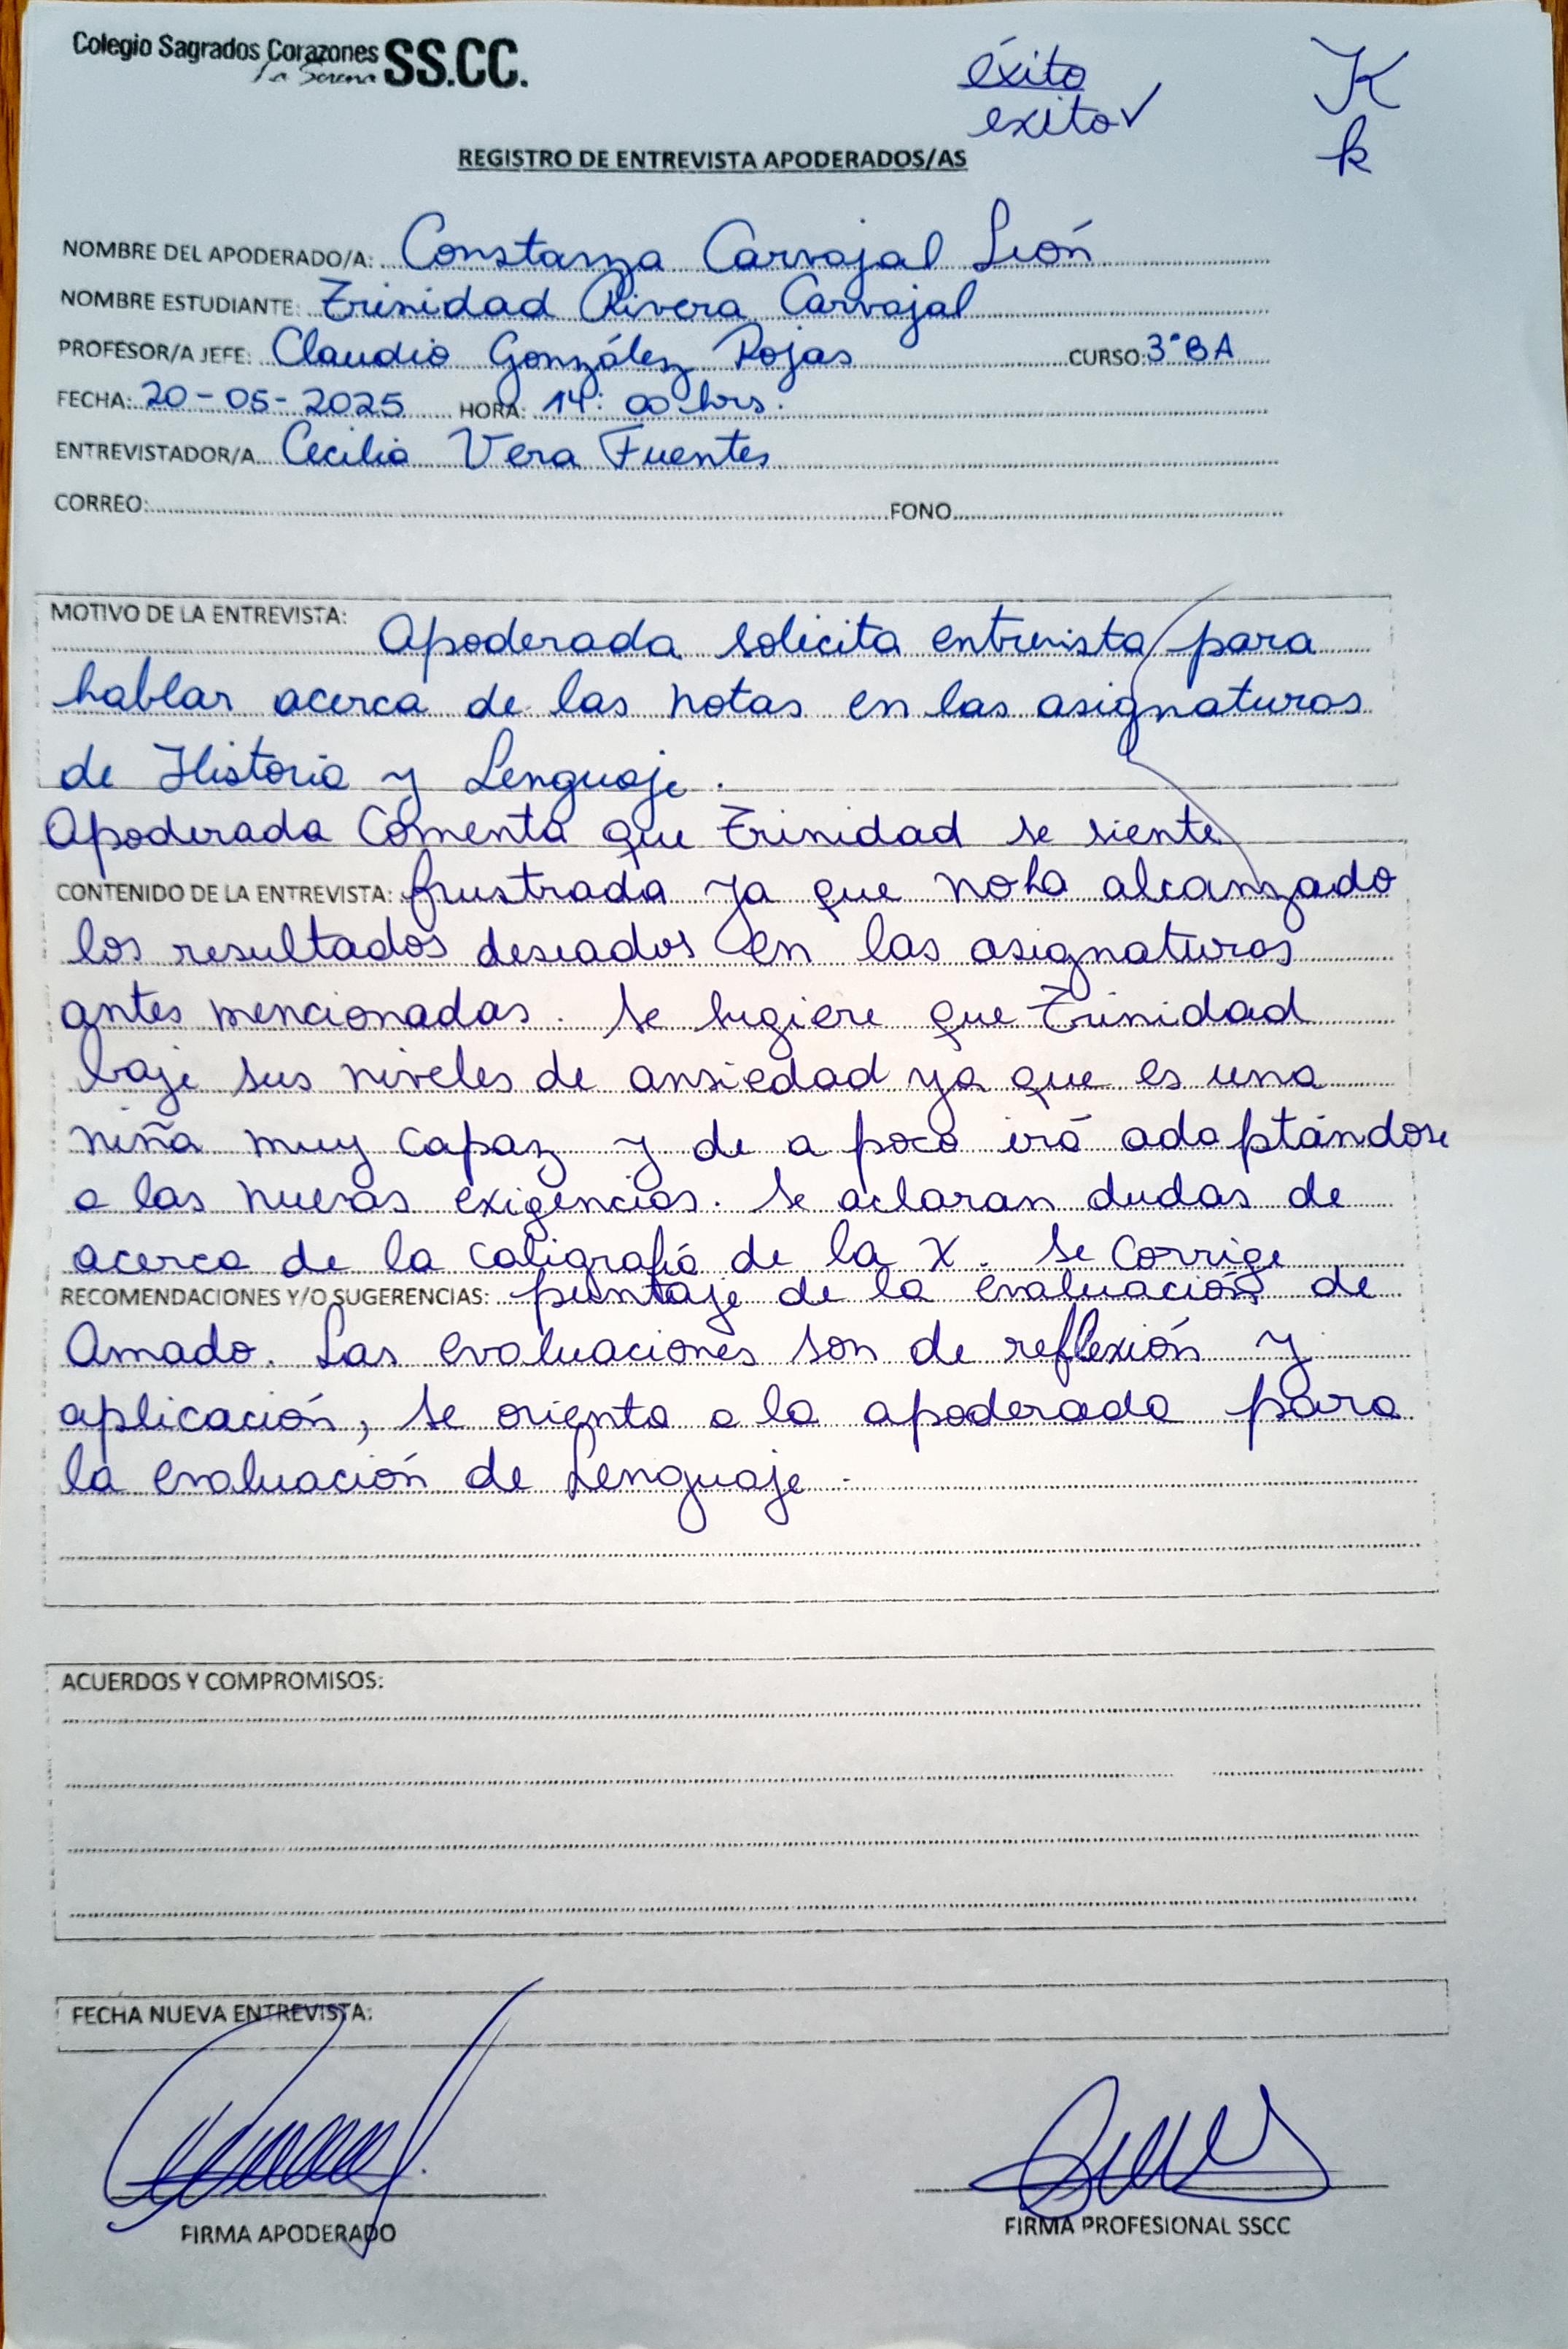 Colegio Sagrados Corazones SS.CC.
La Serena
éxito
exito✓
K
k
REGISTRO DE ENTREVISTA APODERADOS/AS
NOMBRE DEL APODERADO/A: Constanza Carvajal León
NOMBRE ESTUDIANTE: Trinidad Rivera Carvajal
PROFESOR/A JEFE: Claudio González Rojas CURSO: 3°BA
FECHA: 20-05-2025 HORA: 14:00 hrs.
ENTREVISTADOR/A Cecilia Vera Fuentes
CORREO: FONO
MOTIVO DE LA ENTREVISTA: Apoderada solicita entrevista para
hablar acerca de las notas en las asignaturas
de Historia y Lenguaje.
Apoderada comenta que Trinidad se siente
CONTENIDO DE LA ENTREVISTA: frustrada ya que no ha alcanzado
los resultados deseados en las asignaturas
antes mencionadas. Se sugiere que Trinidad
baje sus niveles de ansiedad ya que es una
niña muy capaz y de a poco irá adaptándose
a las nuevas exigencias. Se aclaran dudas de
acerca de la caligrafía de la X. Se corrige
RECOMENDACIONES Y/O SUGERENCIAS: puntaje de la evaluación de
Amado. Las evaluaciones son de reflexión y
aplicación, se orienta a la apoderada para
la evaluación de Lenguaje.
ACUERDOS Y COMPROMISOS:
FECHA NUEVA ENTREVISTA:
FIRMA APODERADO
FIRMA PROFESIONAL SSCC